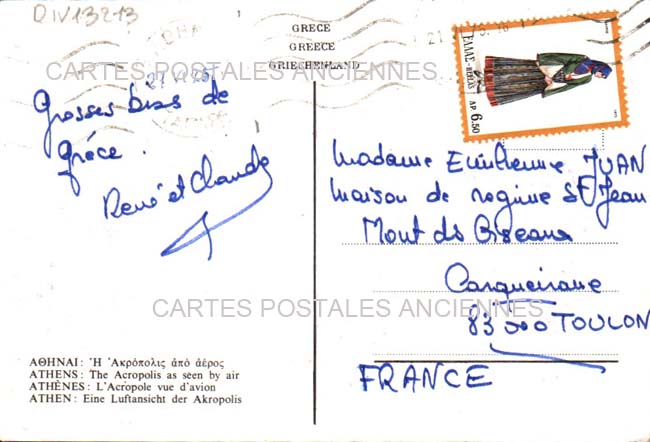 DIV13213
GRECE
GREECE
GRIECHENLAND
CARTES POSTALES ANCIENNES
ΕΛΛΑΣ-HELLAS
ΔΡ 6.50
Grosses bises de
Grèce.
René et Claude
Madame Emilienne JUAN
Maison de régime St Jean
Mont des Oiseaux
Carqueiranne
83000 TOULON
FRANCE
CARTES POSTALES ANCIENNES
ΑΘΗΝΑΙ: Ἡ Ἀκρόπολις ἀπὸ ἀέρος
ATHENS: The Acropolis as seen by air
ATHÈNES: L'Acropole vue d'avion
ATHEN: Eine Luftansicht der Akropolis